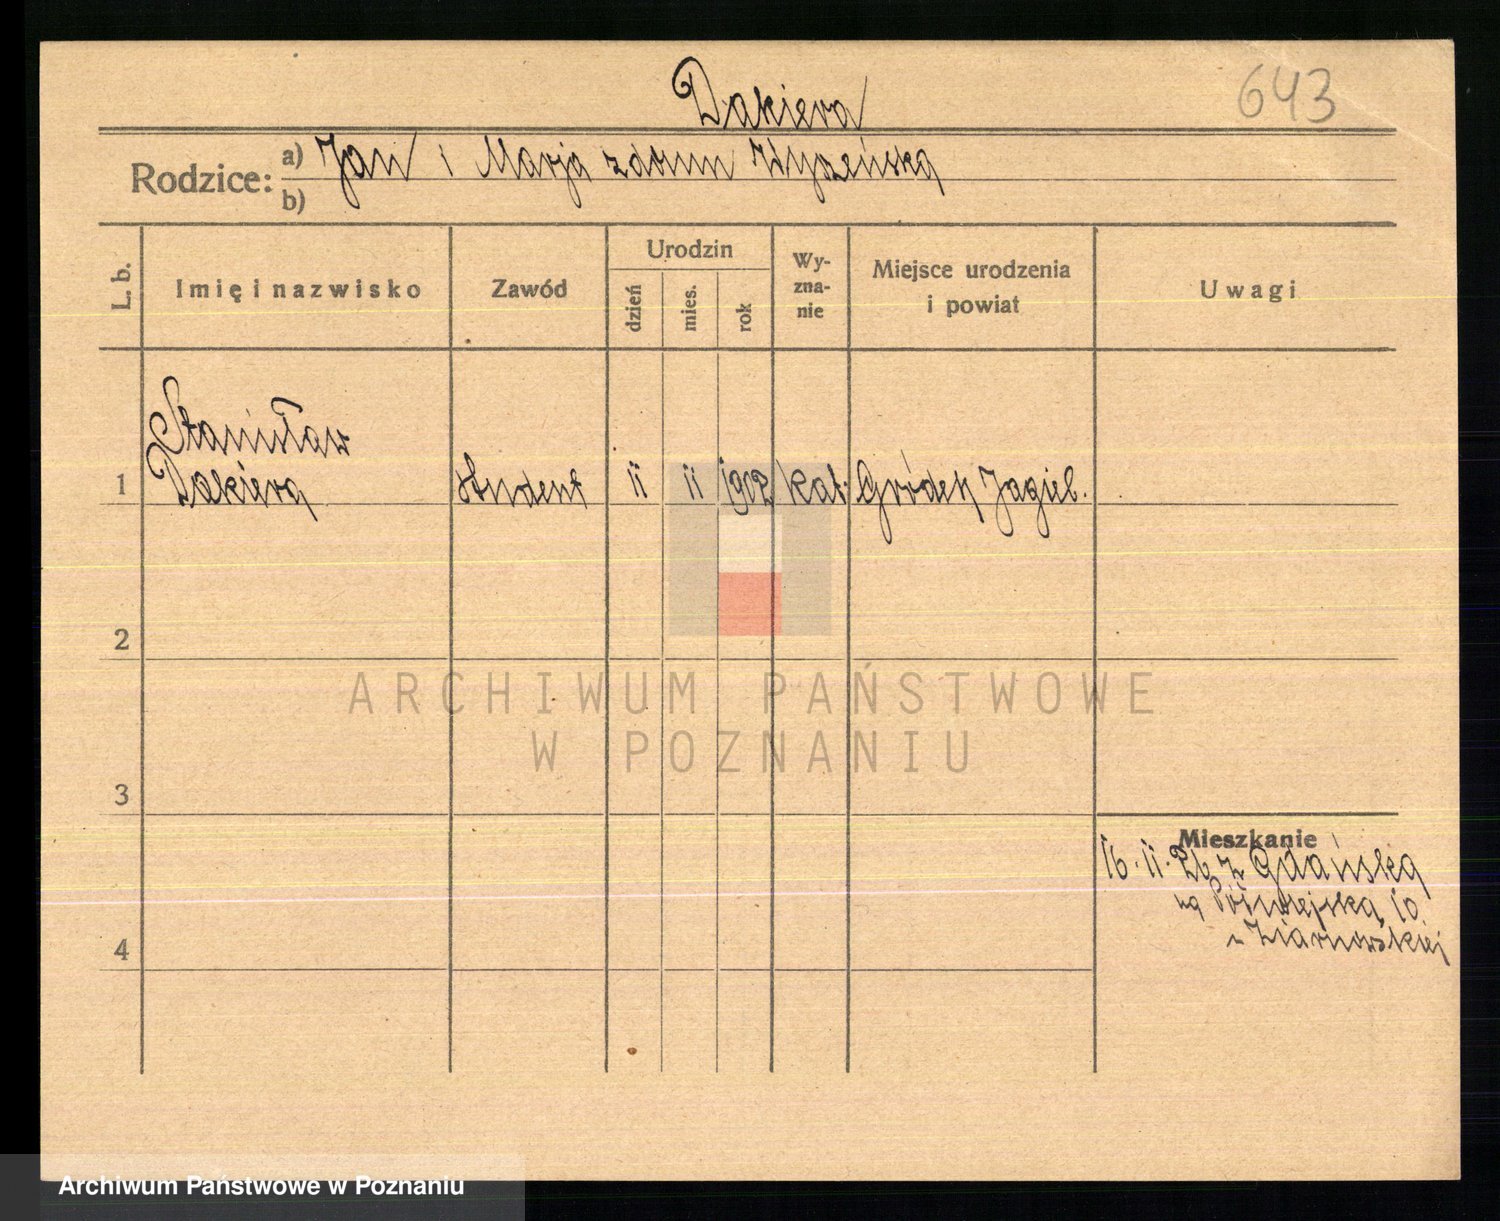 Dakiera
643
Rodzice: a) Jan i Marja z domu Wyszeńska
b)
L. b. Imię i nazwisko Zawód Urodzin dzień mies. rok Wyzna-nie Miejsce urodzenia i powiat Uwagi
Stanisław
1 Dakiera student 11 11 1902 kat. Gródek Jagiel.
2
ARCHIWUM PAŃSTWOWE
W POZNANIU
3
Mieszkanie
16.11.26 z Gdańska
na Półwiejska 10
4
Archiwum Państwowe w Poznaniu